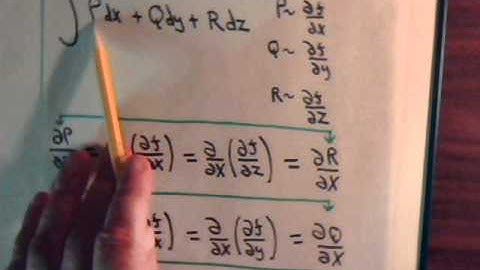 ∫ Pdx + Qdy + Rdz
P ~ ∂f/∂x
Q ~ ∂f/∂y
R ~ ∂f/∂z
∂P/∂ = (∂f/∂x) = ∂/∂x (∂f/∂z) = ∂R/∂x
(∂f/∂x) = ∂/∂x (∂f/∂y) = ∂Q/∂x